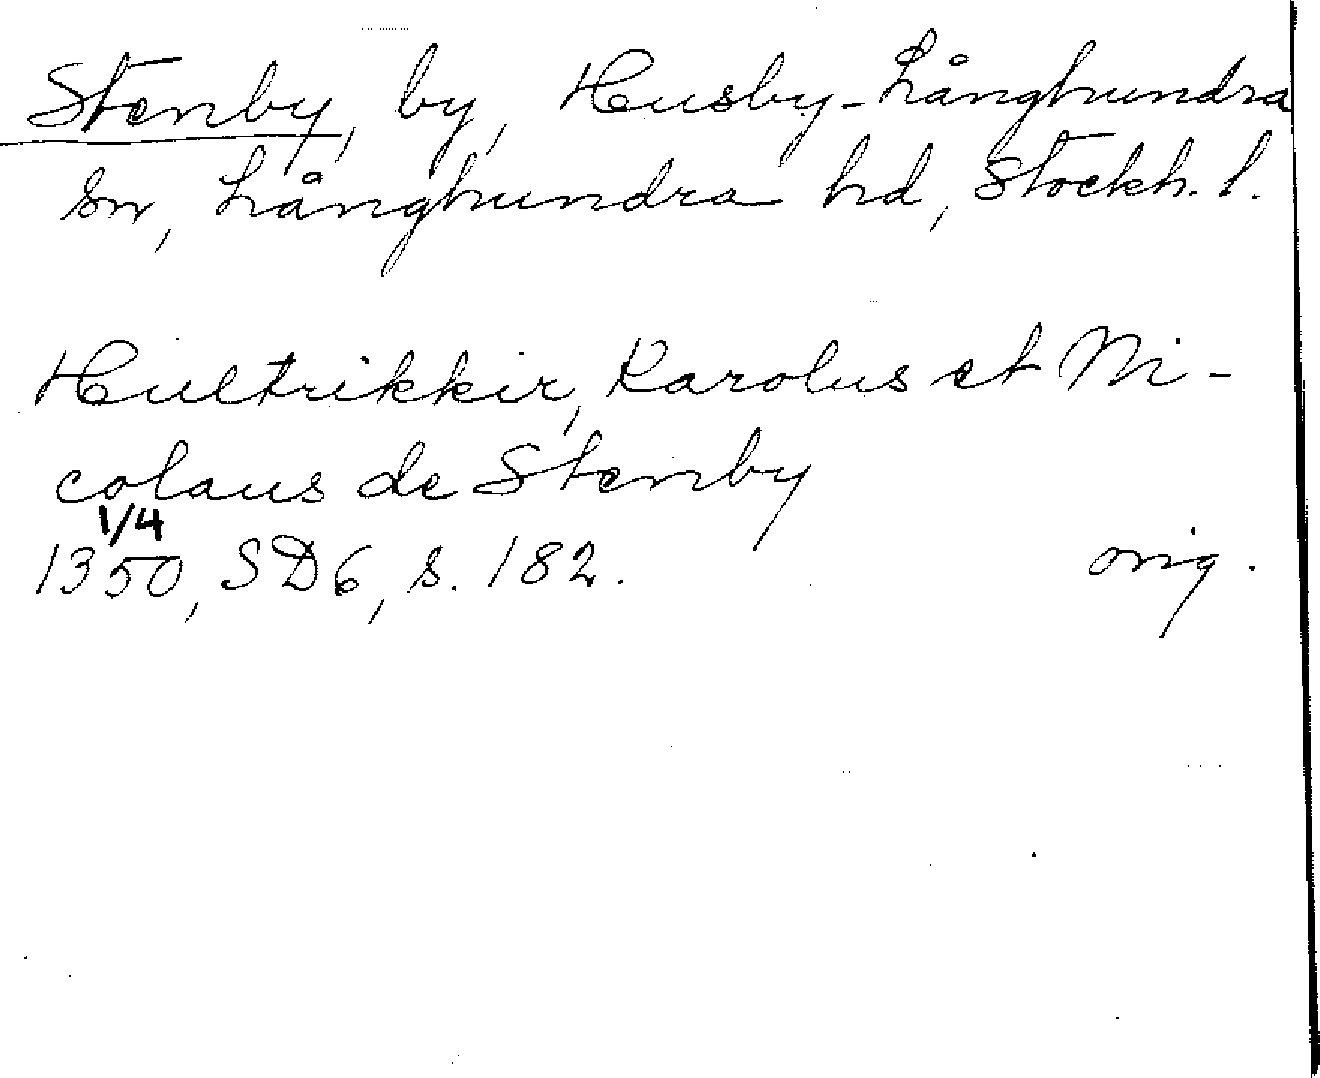 Stenby, by, Husby-Långhundra
sn, Långhundra hd, Stockh. l.
Hultrikkir, Karolus et Ni-
colaus de Stenby
1/4
1350, SD6, s. 182. orig.